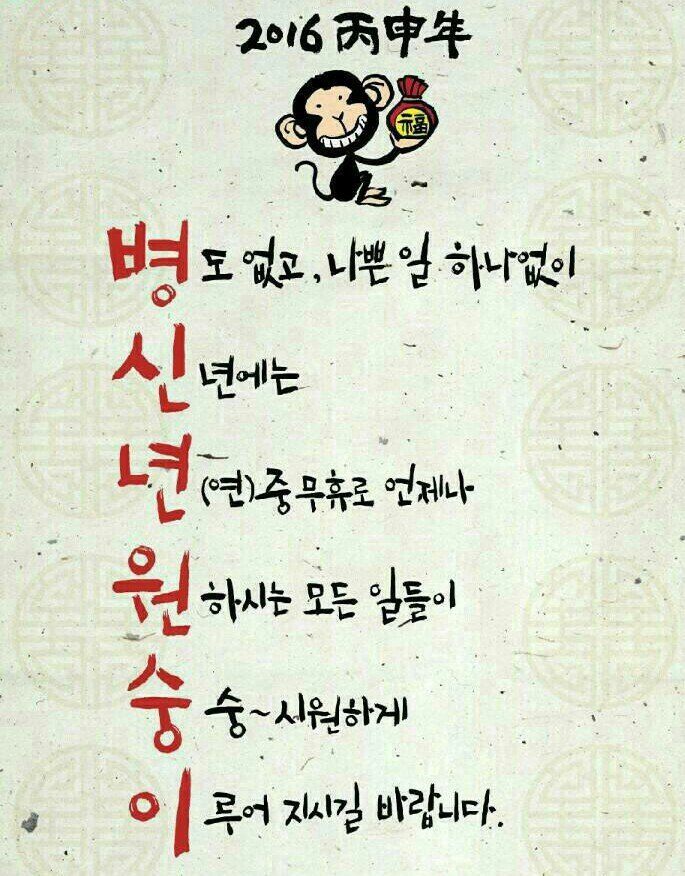 2016 丙申年
福
병도 없고, 나쁜 일 하나없이
신년에는
년(연)중무휴로 언제나
원하시는 모든 일들이
숭숭~시원하게
이루어 지시길 바랍니다.